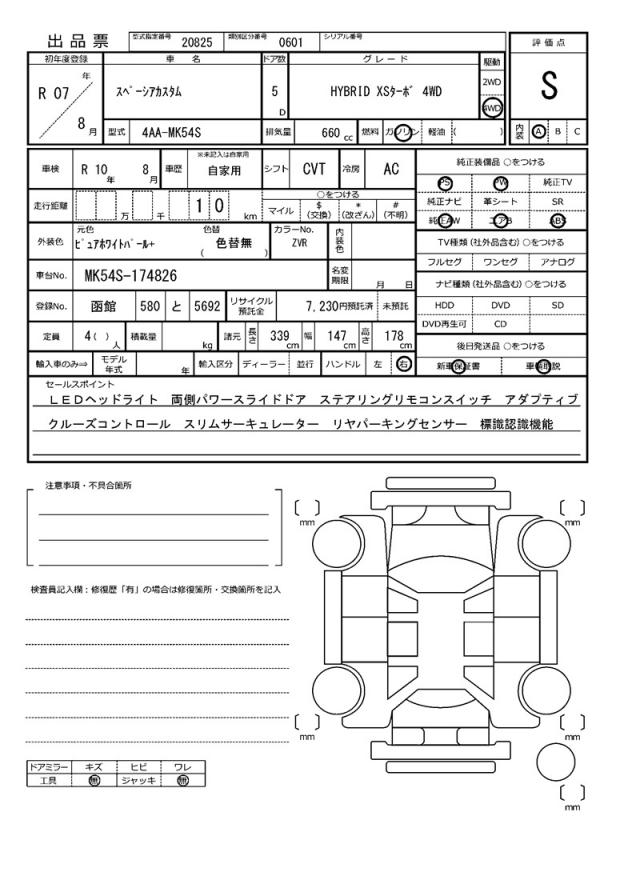 出品票 型式指定番号 20825 類別区分番号 0601 シリアル番号
初年度登録 車名 ドア数 グレード 駆動 評価点
R 07 年 8 月 スペーシアカスタム 5 D HYBRID XSターボ 4WD 2WD 4WD S
型式 4AA-MK54S 排気量 660 cc 燃料 ガソリン 軽油 ( ) 内装 A B C
車検 R 10 年 8 月 車歴 ※未記入は自家用 自家用 シフト CVT 冷房 AC 純正装備品 ○をつける
PS PW 純正TV
走行距離 万 千 1 0 km ○をつける 純正ナビ 革シート SR
マイル $ (交換) * (改ざん) # (不明) 純正AW エアB ABS
外装色 元色 ピュアホワイトパール+ 色替 ( 色替無 ) カラーNo. ZVR 内装色 TV種類 (社外品含む) ○をつける
フルセグ ワンセグ アナログ
車台No. MK54S-174826 名変期限 月 日 ナビ種類 (社外品含む) ○をつける
登録No. 函館 580 と 5692 リサイクル預託金 7,230円預託済 未預託 HDD DVD SD
DVD再生可 CD
定員 4 ( ) 人 積載量 kg 諸元 長さ 339 cm 幅 147 cm 高さ 178 cm 後日発送品 ○をつける
輸入車のみ⇒ モデル年式 年 輸入区分 ディーラー 並行 ハンドル 左 右 新車保証書 車輌取説
セールスポイント
LEDヘッドライト 両側パワースライドドア ステアリングリモコンスイッチ アダプティブ
クルーズコントロール スリムサーキュレーター リヤパーキングセンサー 標識認識機能
注意事項・不具合箇所
mm
mm
検査員記入欄：修復歴「有」の場合は修復箇所・交換箇所を記入
mm
mm
ドアミラー キズ ヒビ ワレ
工具 無 ジャッキ 無
mm